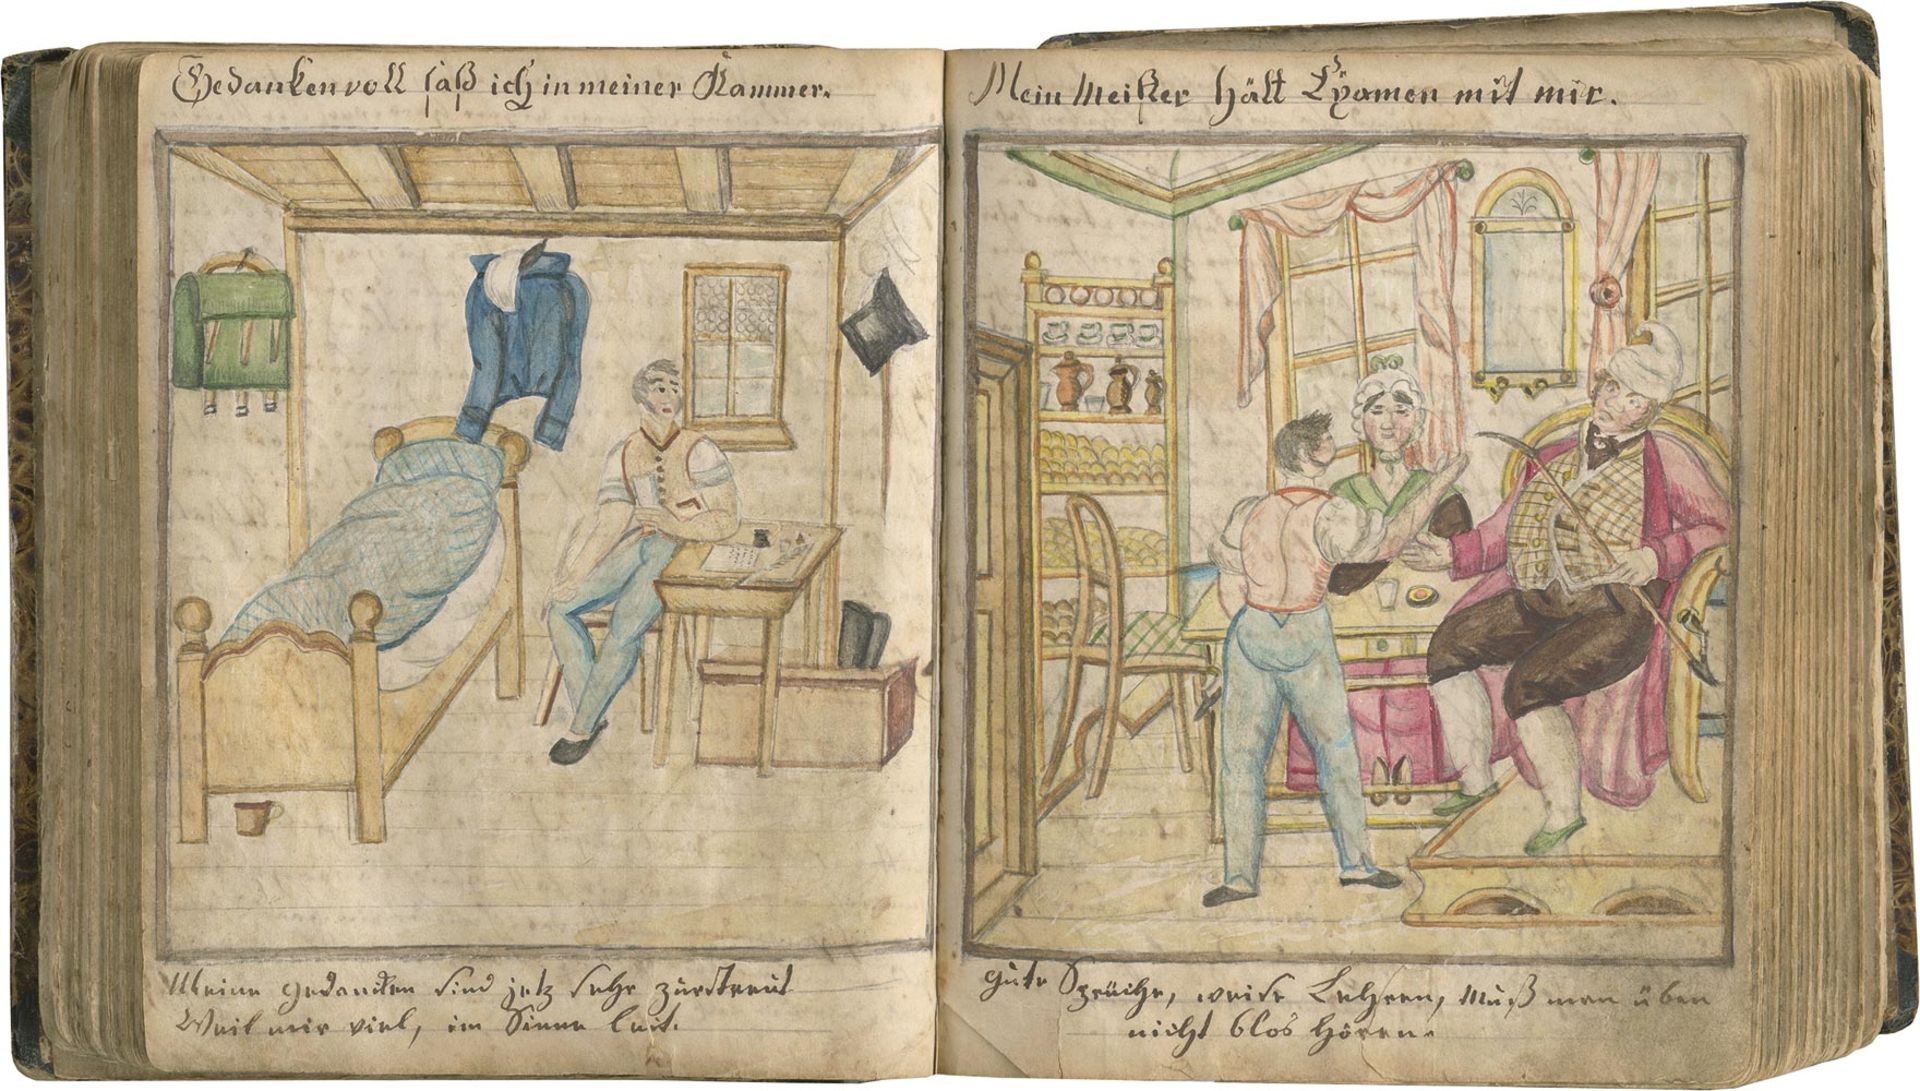 Gedankenvoll saß ich in meiner Kammer.
Meine gedancken sind jetz sehr zürstreut
Weil mir viel, im Sinne leit.
Mein Meister hält Exsamen mit mir.
gute Sprüche, weise Lehren, Muß man üben
nicht blos hören.